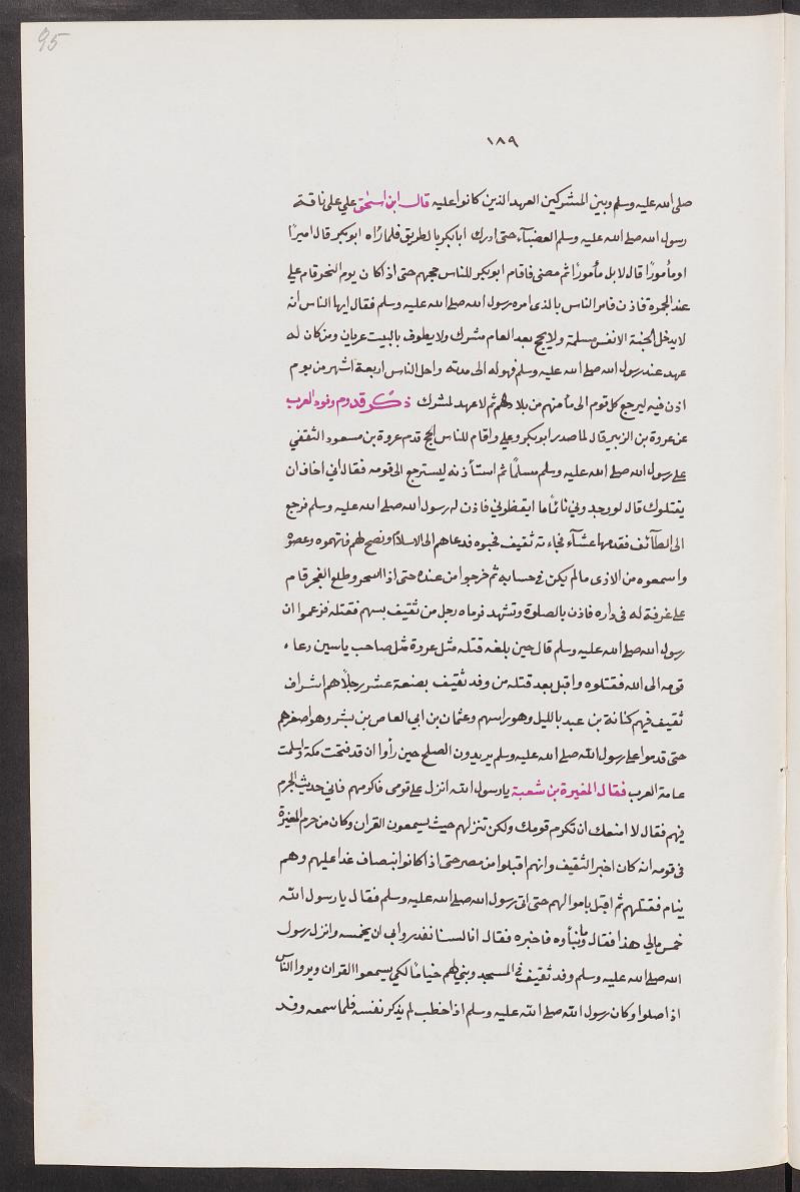 95
١٨٩
صلى الله عليه وسلم وبين المشركين العهد الذين كانوا عليه قال ابن اسحق علي على ناقة
رسول الله صلى الله عليه وسلم العضبآء حتى ادرك ابابكر بالطريق فلما رٱه ابوبكر قال اميرًا
او مأمورًا قال لا بل مأمورًا ثم مضى فاقام ابوبكر للناس حجهم حتى اذا كان يوم النحر قام علي
عند الجمرة فاذن فامر الناس بالذي امره رسول الله صلى الله عليه وسلم فقال ايها الناس انه
لا يدخل الجنة الا نفس مسلمة ولا يحج بعد العام مشرك ولا يطوف بالبيت عريان ومن كان له
عهد عند رسول الله صلى الله عليه وسلم فهوله الى مدته واجل الناس اربعة اشهر من يوم
اذن فيه ليرجع كل قوم الى مأمنهم من بلادهم ثم لا عهد لمشرك ذكر قدوم وفود العرب
عن عروة بن الزبير قال لما صدر ابوبكر وعلي واقام للناس الحج قدم عروة بن مسعود الثقفي
على رسول الله صلى الله عليه وسلم مسلمًا ثم استأذنه ليسترجع الى قومه فقال اني اخاف ان
يقتلوك قال لو وجدوني نائمًا ما ايقظوني فاذن له رسول الله صلى الله عليه وسلم فرجع
الى الطآئف فقدمها عشآء فجاءته ثقيف فحيوه فدعاهم الى الاسلام ونصح لهم فاتهموه وعصوه
واسمعوه من الاذى ما لم يكن في حسابه ثم خرجوا من عنده حتى اذا اسحر وطلع الفجر قام
على غرفة له فى داره فاذن بالصلوة وتشهد فرماه رجل من ثقيف بسهم فقتله فزعموا ان
رسول الله صلى الله عليه وسلم قال حين بلغه قتله مثل عروة مثل صاحب ياسين دعا
قومه الى الله فقتلوه واقبل بعد قتله من وفد ثقيف بضعة عشر رجلًا هم اشراف
ثقيف فيهم كنانة بن عبد ياليل وهو راسهم وعثمان بن ابي العاص بن بشر وهو اصغرهم
حتى قدموا على رسول الله صلى الله عليه وسلم يريدون الصلح حين رأوا ان قد فتحت مكة واسلمت
عامة العرب فقال المغيرة بن شعبة يا رسول الله انزل على قومى فاكرمهم فاني حديث الجرم
فيهم فقال لا امنعك ان تكرم قومك ولكن تنزلهم حيث يسمعون القران وكان من جرم المغيرة
فى قومه انه كان اخبر الثقيف وانهم اقبلوا من مصر حتى اذا كانوا ببصاف غدا عليهم وهم
ينام فقتلهم ثم اقبل باموالهم حتى اتى رسول الله صلى الله عليه وسلم فقال يا رسول الله
خمس مالي هذا فقال وما نبأوه فاخبره فقال انا لسنا نغدر وابى ان يخمسه وانزل رسول
الله صلى الله عليه وسلم وفد ثقيف في المسجد وبنى لهم خيامًا لكي يسمعوا القران ويروا الناس
اذا صلوا وكان رسول الله صلى الله عليه وسلم اذا خطب لم يذكر نفسه فلما سمعه وفد